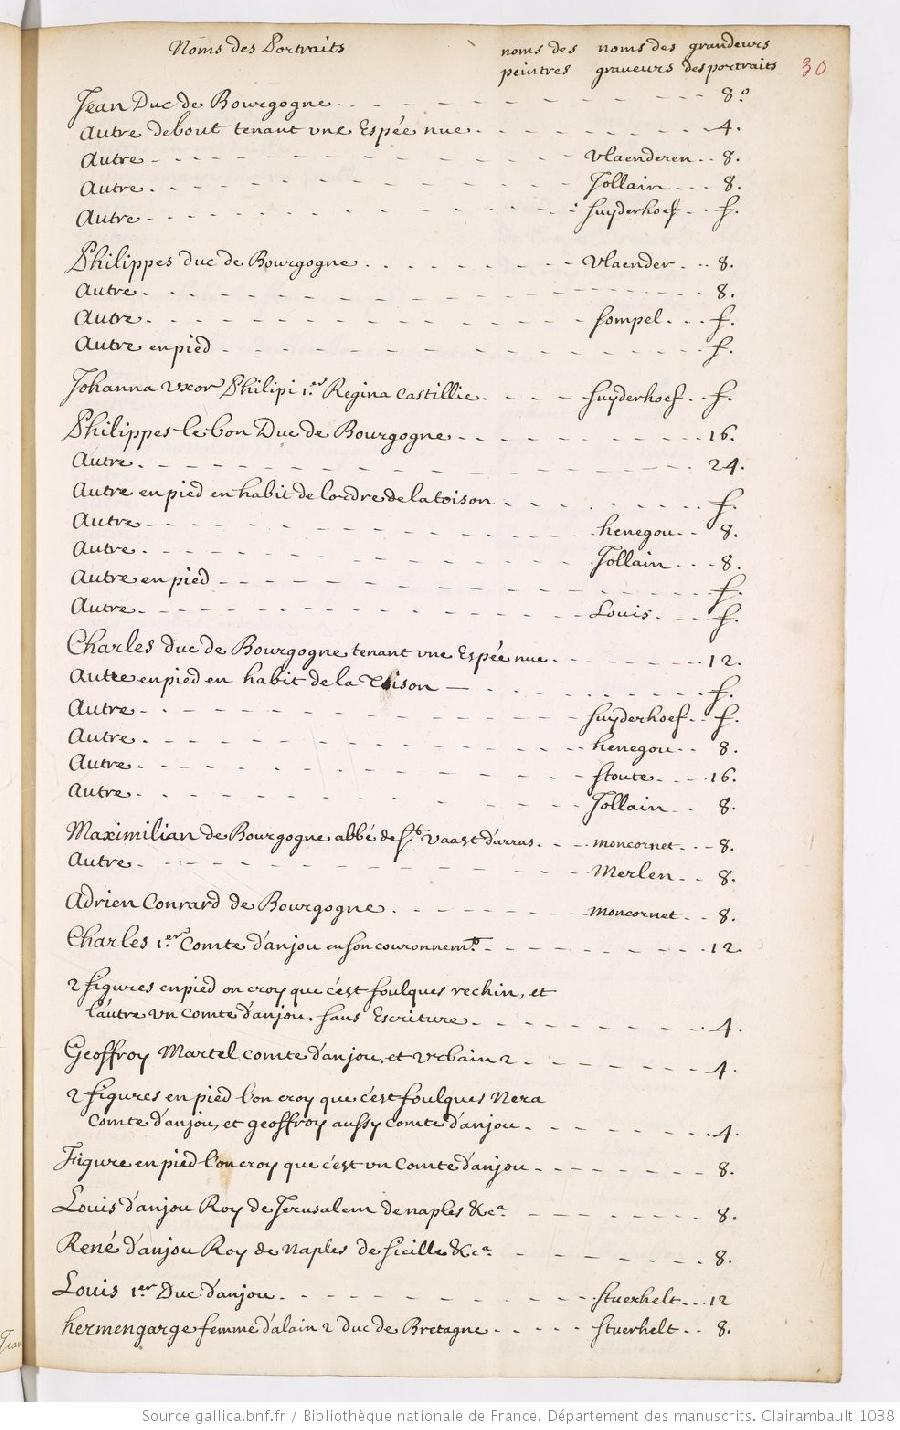 Noms des Portraits noms des noms des grandeurs
peintres graveurs des portraits 30
Jean Duc de Bourgogne 8.o
Autre debout tenant vne Espée nue 4.
Autre vlaenderen 8.
Autre Jollain 8.
Autre suyderhoef f.
Philippes duc de Bourgogne vlaender 8.
Autre 8.
Autre sompel f.
Autre en pied f.
Johanna vxor Philipi 1.er Regina castillie suyderhoef f.
Philippes le bon Duc de Bourgogne 16.
Autre 24.
Autre en pied en habit de lordre de la toison f.
Autre henegou 8.
Autre Jollain 8.
Autre en pied f.
Autre Louis f.
Charles duc de Bourgogne tenant vne Espée nue 12.
Autre en pied en habit de la Toison f.
Autre suyderhoef f.
Autre henegou 8.
Autre stoute 16.
Autre Jollain 8.
Maximilian de Bourgogne abbé de St. vaast d'arras moncornet 8.
Autre Merlen 8.
Adrien Conrard de Bourgogne moncornet 8.
Charles 1.er Comte d'anjou en son couronnemt. 12
2 figures en pied on croy que c'est foulques rechin, et
l'autre vn comte d'anjou. sans Escriture 4.
Geoffroy Martel comte d'anjou, et vrbain 2 4.
2 figures en pied l'on croy que c'est foulques Nera
Comte d'anjou, et geoffroy aussy comte d'anjou 4.
Figure en pied l'on croy que c'est vn Comte d'anjou 8.
Louis d'anjou Roy de Jerusalem de naples &c.a 8.
René d'anjou Roy de Naples de sicille &c.a 8.
Louis 1er Duc d'anjou stuerhelt 12
hermengarge femme d'alain 2 duc de Bretagne stuerhelt 8.
Source gallica.bnf.fr / Bibliothèque nationale de France. Département des manuscrits. Clairambault 1038